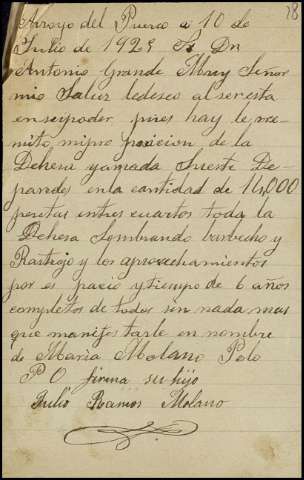 78
Arroyo del Puerco a 10 de
Julio de 1928 Sr Dn
Antonio Grande Muy Señor
mio Saluz ledeseo al seresta
ensupoder pues hay le rre
mito mipro posicion de la
Dehesa yamada Suerte De
pardos enla cantidad de 14,000
pesetas entres cuartos toda la
Dehesa Sembrando barbecho y
Rastrojo y los aprovechamientos
por es pacio ytiempo de 6 años
completos de todos sin nada mas
que manifes tarle en nombre
de Maria Molano Polo
P O firma su hijo
Julio Ramos Molano